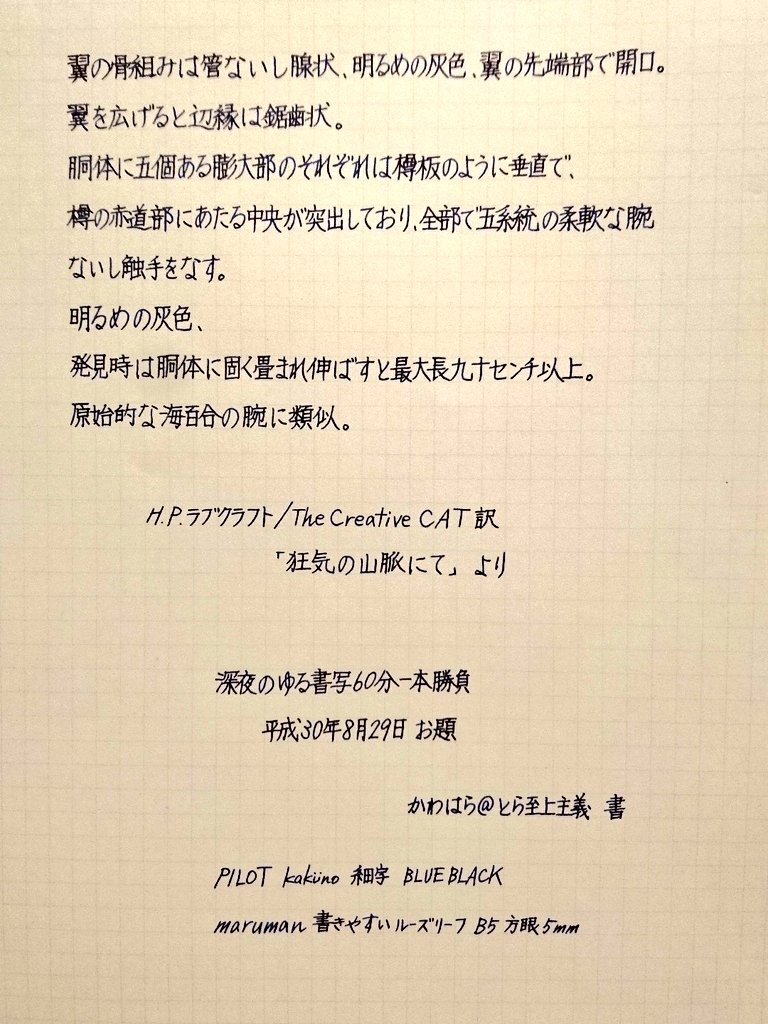 翼の骨組みは管ないし腺状、明るめの灰色、翼の先端部で開口。
翼を広げると辺縁は鋸歯状。
胴体に五個ある膨大部のそれぞれは樽板のように垂直で、
樽の赤道部にあたる中央が突出しており、全部で五系統の柔軟な腕
ないし触手をなす。
明るめの灰色、
発見時は胴体に固く畳まれ伸ばすと最大長九十センチ以上。
原始的な海百合の腕に類似。
H.P.ラブクラフト/The Creative CAT 訳
「狂気の山脈にて」より
深夜のゆる書写60分一本勝負
平成30年8月29日 お題
かわはら@とら至上主義 書
PILOT kaküno 細字 BLUE BLACK
maruman 書きやすいルーズリーフ B5 方眼5mm